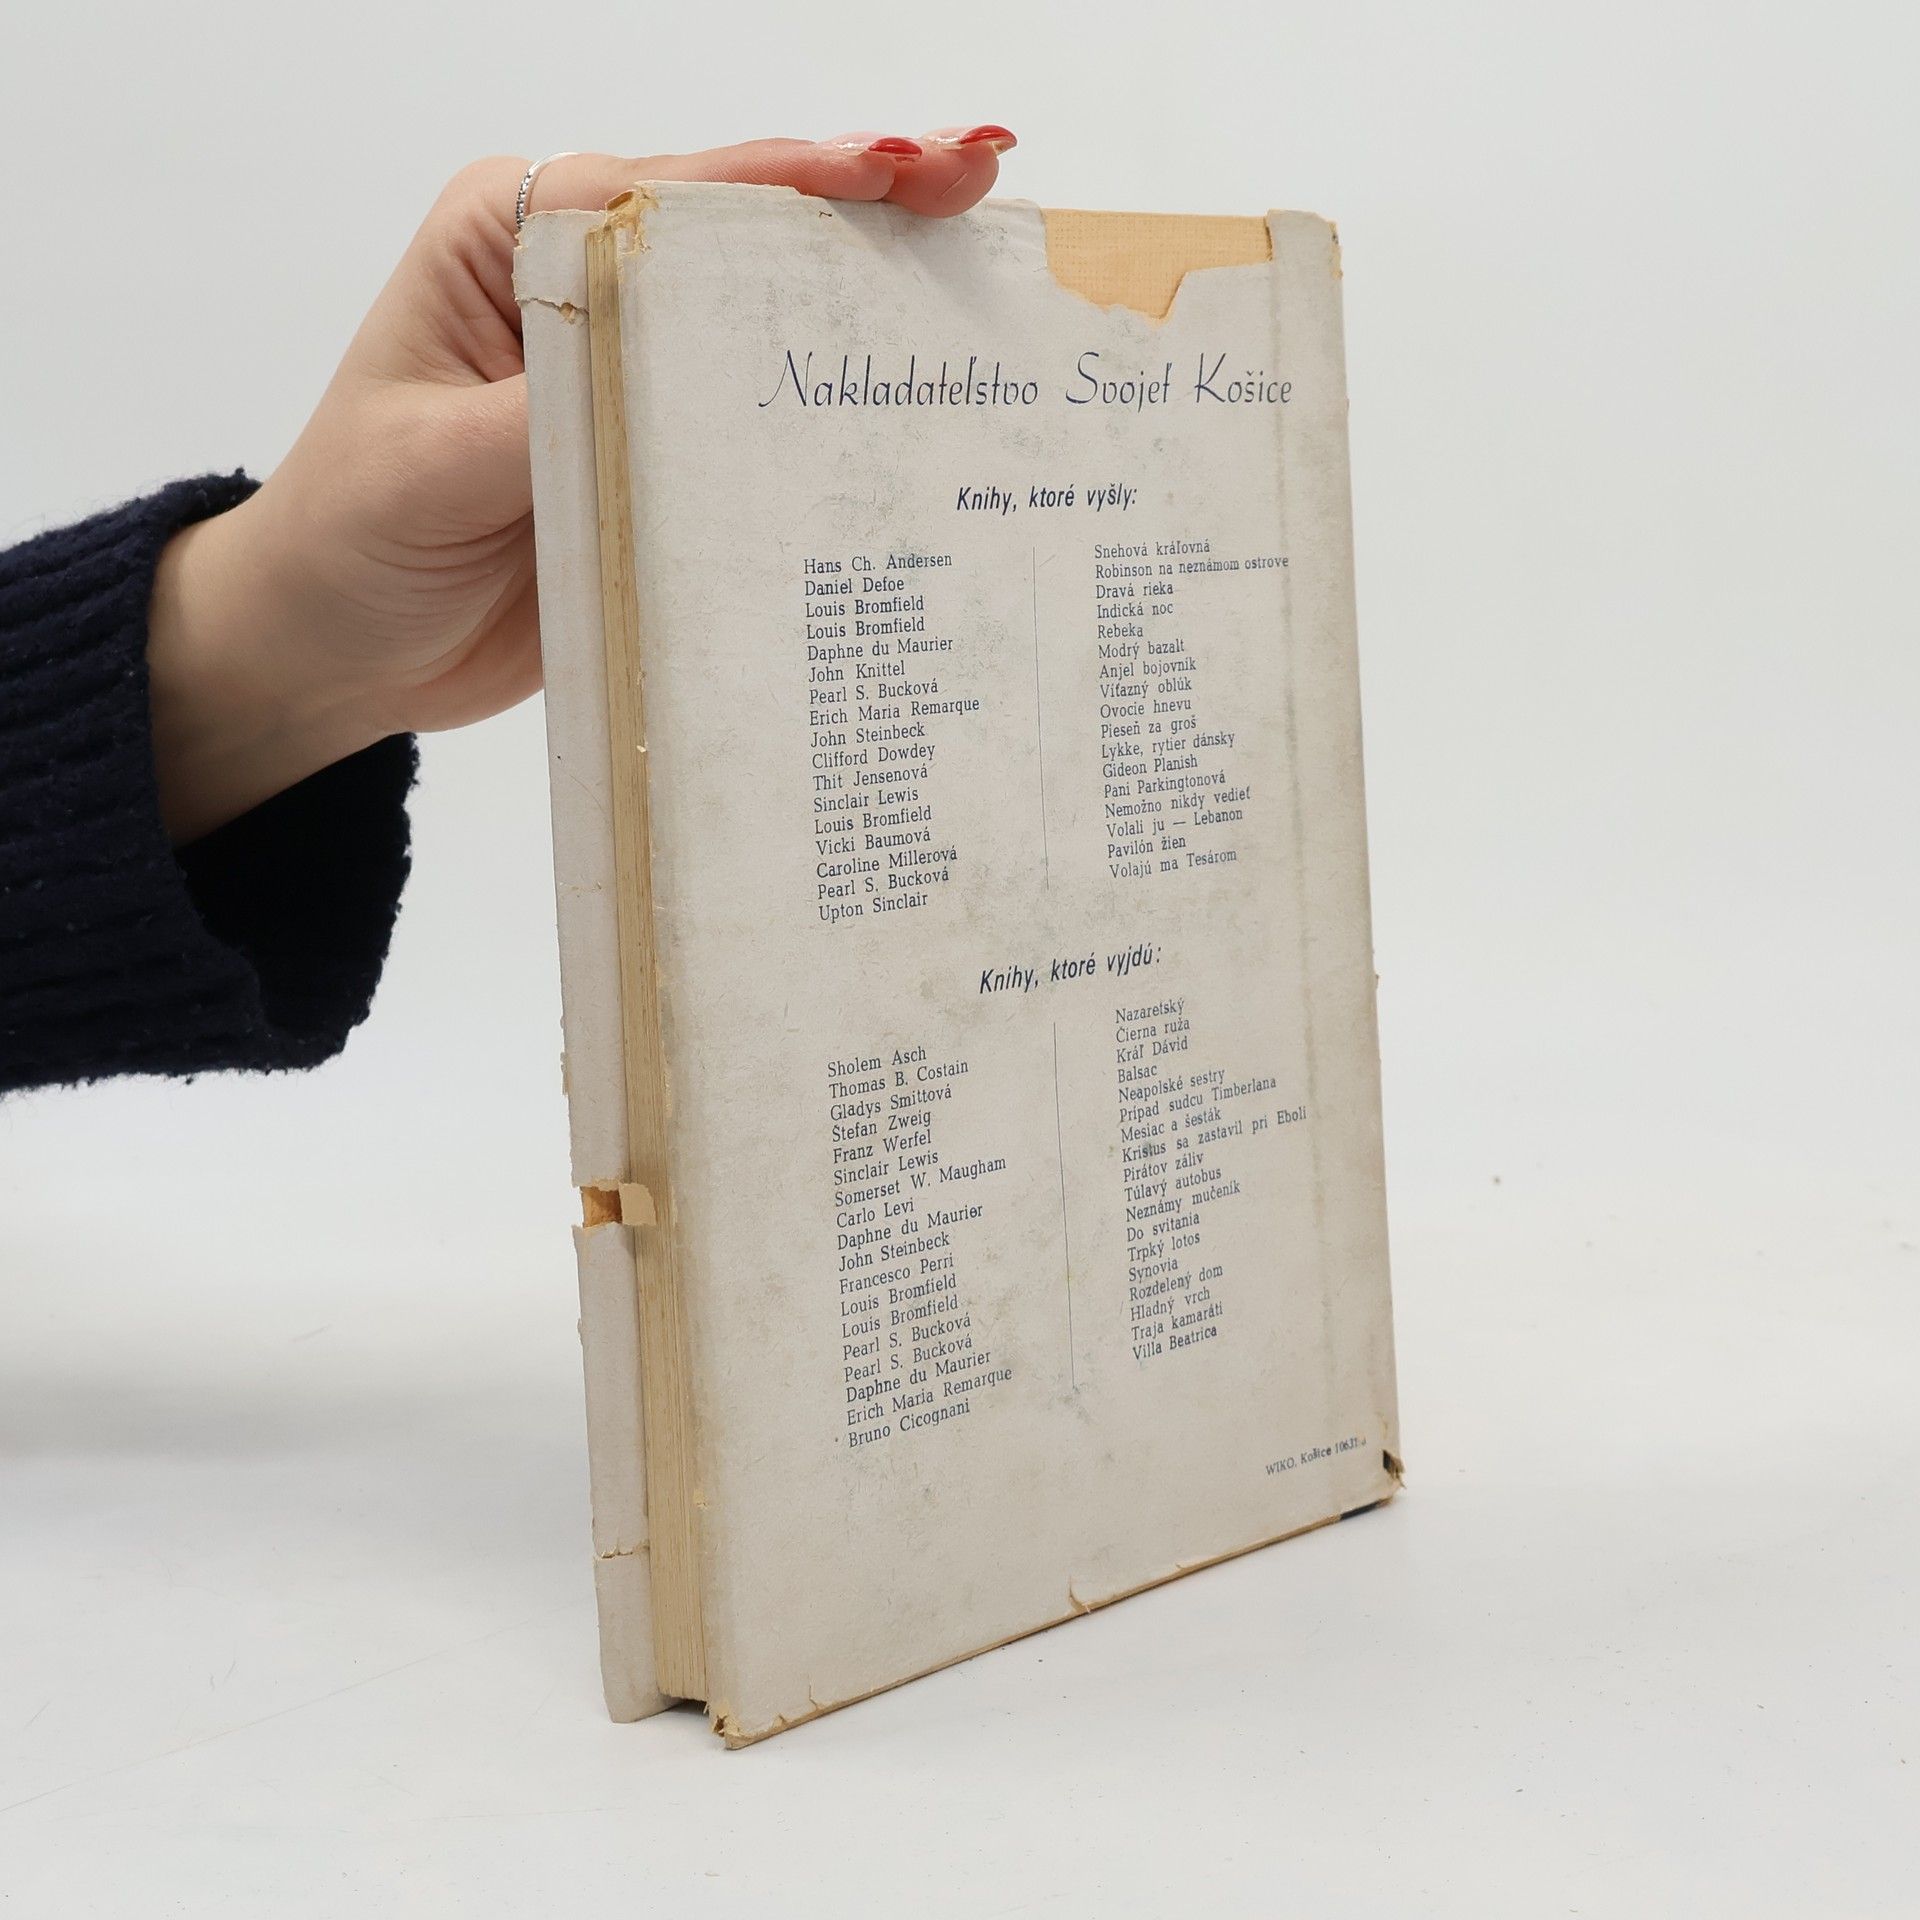 Nakladateľstvo Svojeť Košice
Knihy, ktoré vyšly:
Hans Ch. Andersen Snehová kráľovná
Daniel Defoe Robinson na neznámom ostrove
Louis Bromfield Dravá rieka
Louis Bromfield Indická noc
Daphne du Maurier Rebeka
John Knittel Modrý bazalt
Pearl S. Bucková Anjel bojovník
Erich Maria Remarque Víťazný oblúk
John Steinbeck Ovocie hnevu
Clifford Dowdey Pieseň za groš
Thit Jensenová Lykke, rytier dánsky
Sinclair Lewis Gideon Planish
Louis Bromfield Pani Parkingtonová
Vicki Baumová Nemožno nikdy vedieť
Caroline Millerová Volali ju — Lebanon
Pearl S. Bucková Pavilón žien
Upton Sinclair Volajú ma Tesárom
Knihy, ktoré vyjdú:
Sholem Asch Nazaretský
Thomas B. Costain Čierna ruža
Gladys Smittová Kráľ Dávid
Štefan Zweig Balsac
Franz Werfel Neapolské sestry
Sinclair Lewis Prípad sudcu Timberlana
Somerset W. Maugham Mesiac a šesták
Carlo Levi Kristus sa zastavil pri Eboli
Daphne du Maurier Pirátov záliv
John Steinbeck Túlavý autobus
Francesco Perri Neznámy mučeník
Louis Bromfield Do svitania
Louis Bromfield Trpký lotos
Pearl S. Bucková Synovia
Pearl S. Bucková Rozdelený dom
Daphne du Maurier Hladný vrch
Erich Maria Remarque Traja kamaráti
Bruno Cicognani Villa Beatrica
WIKO, Košice